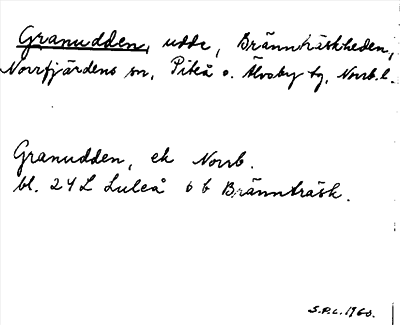 Granudden, udde, Brännträskheden,
Norrfjärdens sn, Piteå o. Älvsby tg, Norrb. l.
Granudden, ek Norrb.
bl. 24 L Luleå 6 b Brännträsk.
S.P.L. 1960.